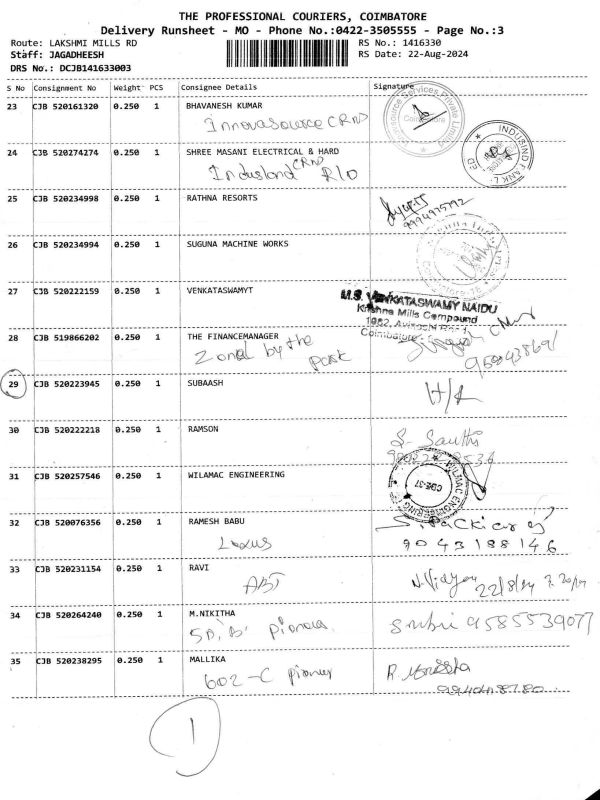 THE PROFESSIONAL COURIERS, COIMBATORE
Delivery Runsheet - MO - Phone No.:0422-3505555 - Page No.:3
Route: LAKSHMI MILLS RD RS No.: 1416330
Staff: JAGADHEESH RS Date: 22-Aug-2024
DRS No.: DCJB141633003
S No Consignment No Weight PCS Consignee Details Signature
23 CJB 520161320 0.250 1 BHAVANESH KUMAR
Innovasource CRND
24 CJB 520274274 0.250 1 SHREE MASANI ELECTRICAL & HARD
CRND
Indusland R/O
INDUSIND BANK
25 CJB 520234998 0.250 1 RATHNA RESORTS
26 CJB 520234994 0.250 1 SUGUNA MACHINE WORKS
27 CJB 520222159 0.250 1 VENKATASWAMYT
M.S. VENKATASWAMY NAIDU
Krishna Mills Compound
1982,
Coimbatore
28 CJB 519866202 0.250 1 THE FINANCEMANAGER
Zonal by the
Park
29 CJB 520223945 0.250 1 SUBAASH
30 CJB 520222218 0.250 1 RAMSON
31 CJB 520257546 0.250 1 WILAMAC ENGINEERING
WILMAC ENGINEERING
CBE-37
32 CJB 520076356 0.250 1 RAMESH BABU
Lexus
9043188146
33 CJB 520231154 0.250 1 RAVI
ABT
22/8/24
34 CJB 520264240 0.250 1 M.NIKITHA
9585539077
35 CJB 520238295 0.250 1 MALLIKA
602-C pioneer
1